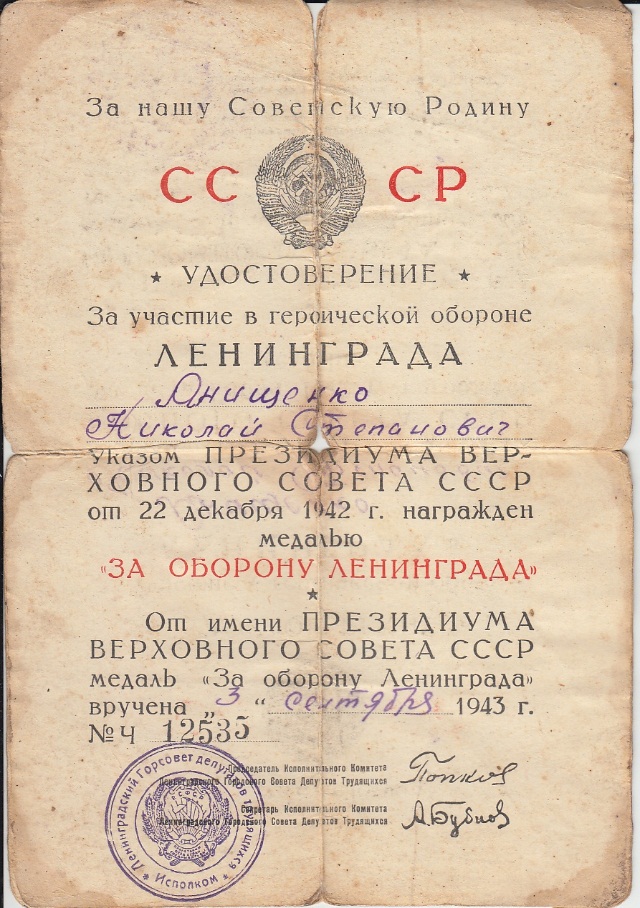 За нашу Советскую Родину
СССР
★ УДОСТОВЕРЕНИЕ ★
За участие в героической обороне
ЛЕНИНГРАДА
Анищенко
Николай Степанович
Указом ПРЕЗИДИУМА ВЕР-
ХОВНОГО СОВЕТА СССР
от 22 декабря 1942 г. награжден
медалью
«ЗА ОБОРОНУ ЛЕНИНГРАДА»
★
От имени ПРЕЗИДИУМА
ВЕРХОВНОГО СОВЕТА СССР
медаль «За оборону Ленинграда»
вручена „3“ сентября 1943 г.
№ Ч 12535
Председатель Исполнительного Комитета
Ленинградского Городского Совета Депутатов Трудящихся
Попков
Секретарь Исполнительного Комитета
Ленинградского Городского Совета Депутатов Трудящихся
А. Бубнов
Ленинградский Горсовет депутатов трудящихся
★ Исполком ★